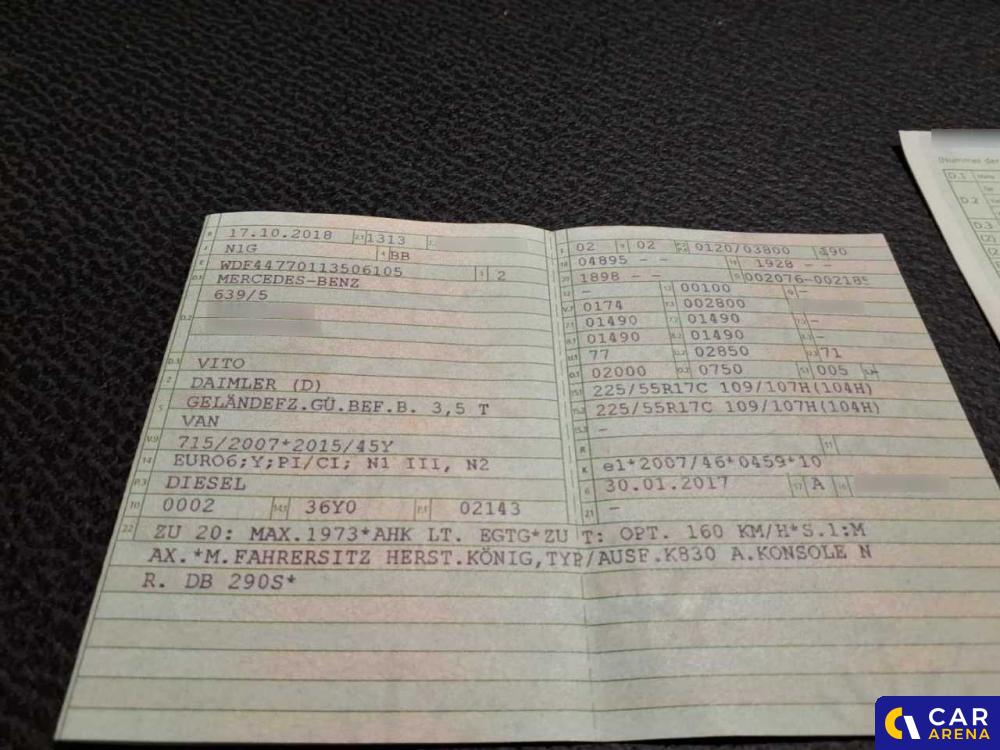 17.10.2018 1313
N1G BB
WDF44770113506105 2
MERCEDES-BENZ
639/5
VITO
DAIMLER (D)
GELÄNDEFZ.GÜ.BEF.B. 3,5 T
VAN
715/2007*2015/45Y
EURO6;Y;PI/CI; N1 III, N2
DIESEL
0002 36Y0 02143
02 02 0120/03800 490
04895 - - 1928 - -
1898 - - 002076-002185
- 00100 -
0174 002800
01490 01490 -
01490 01490 -
77 02850 71
02000 0750 005
225/55R17C 109/107H(104H)
225/55R17C 109/107H(104H)
-
R 11
K e1*2007/46*0459*10
6 30.01.2017 17 A
21 -
22 ZU 20: MAX.1973*AHK LT. EGTG*ZU T: OPT. 160 KM/H*S.1:M
AX.*M.FAHRERSITZ HERST.KÖNIG,TYP/AUSF.K830 A.KONSOLE N
R. DB 290S*
(Nummer der
D.1
D.2
D.3
(2)
CAR
ARENA